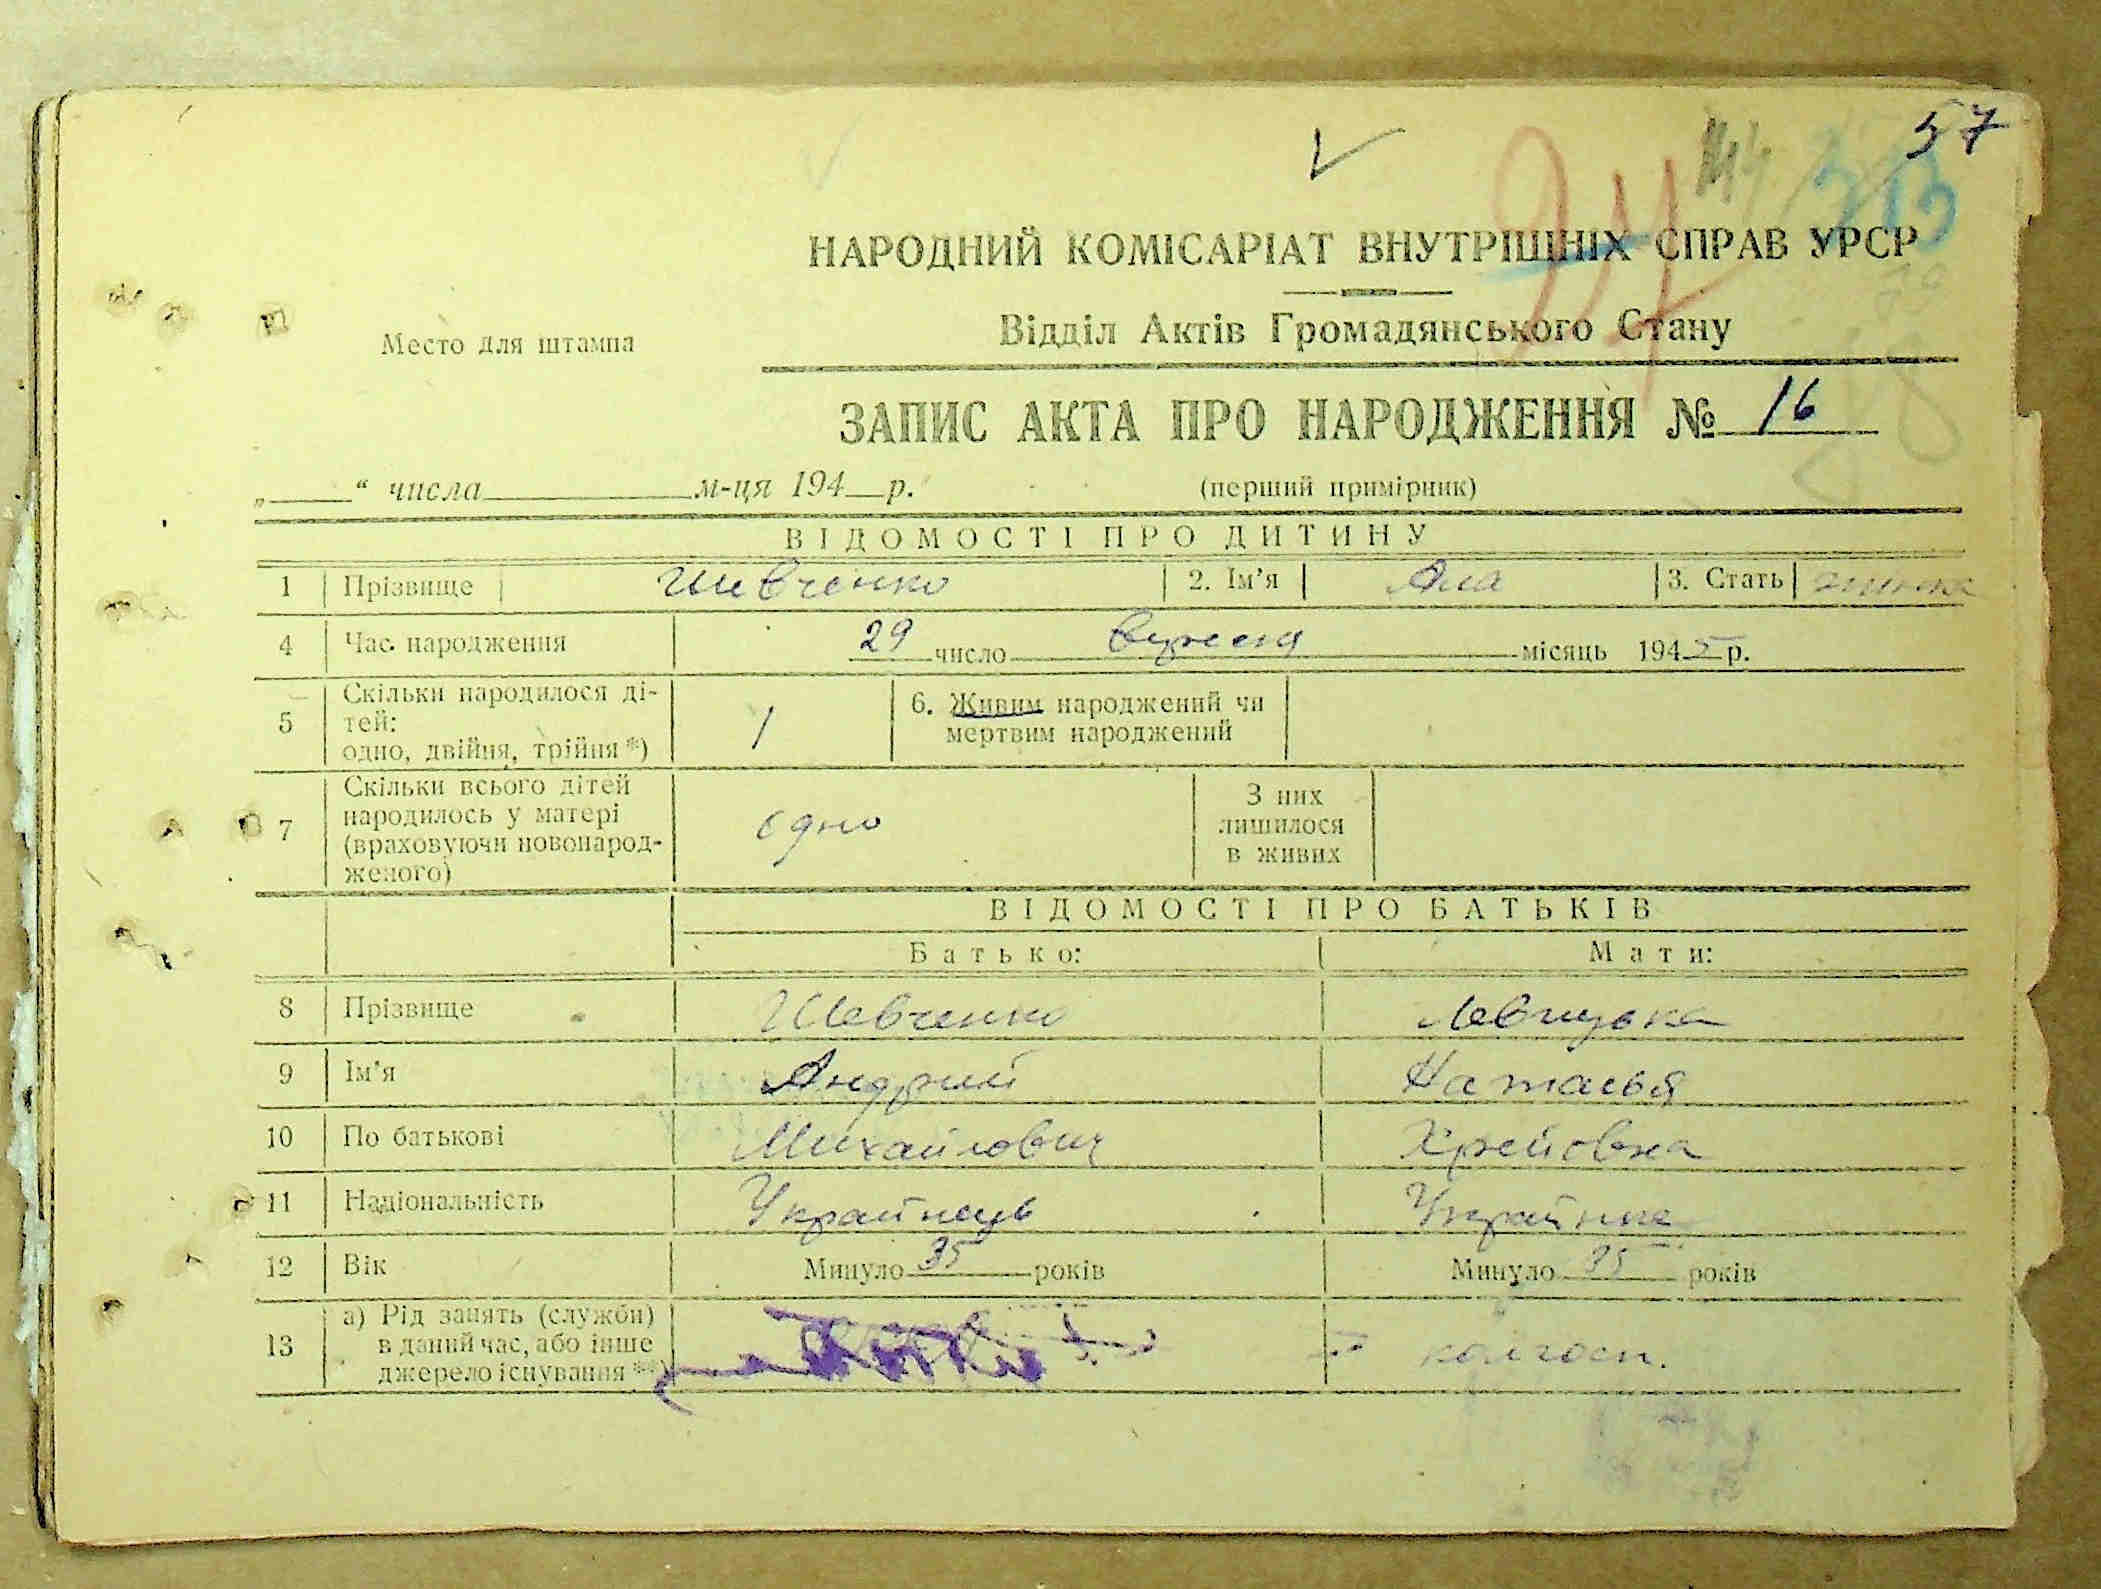 57
НАРОДНИЙ КОМІСАРІАТ ВНУТРІШНІХ СПРАВ УРСР
Место для штампа
Відділ Актів Громадянського Стану
ЗАПИС АКТА ПРО НАРОДЖЕННЯ № 16
„ “ числа м-ця 194 р. (перший примірник)
ВІДОМОСТІ ПРО ДИТИНУ
1 Прізвище Шевченко 2. Ім'я Ала 3. Стать
4 Час народження 29 число місяць 1945 р.
5 Скільки народилося ді-
тей:
одно, двійня, трійня *) 1 6. Живим народжений чи
мертвим народжений
7 Скільки всього дітей
народилось у матері
(враховуючи новонарод-
женого) одно З них
лишилося
в живих
ВІДОМОСТІ ПРО БАТЬКІВ
Батько: Мати:
8 Прізвище Шевченко Левицька
9 Ім'я Андрий Наталья
10 По батькові Михайлович
11 Національність Украйнець Украйнка
12 Вік Минуло 35 років Минуло 35 років
13 а) Рід занять (служби)
в даний час, або інше
джерело існування **) колгосп.